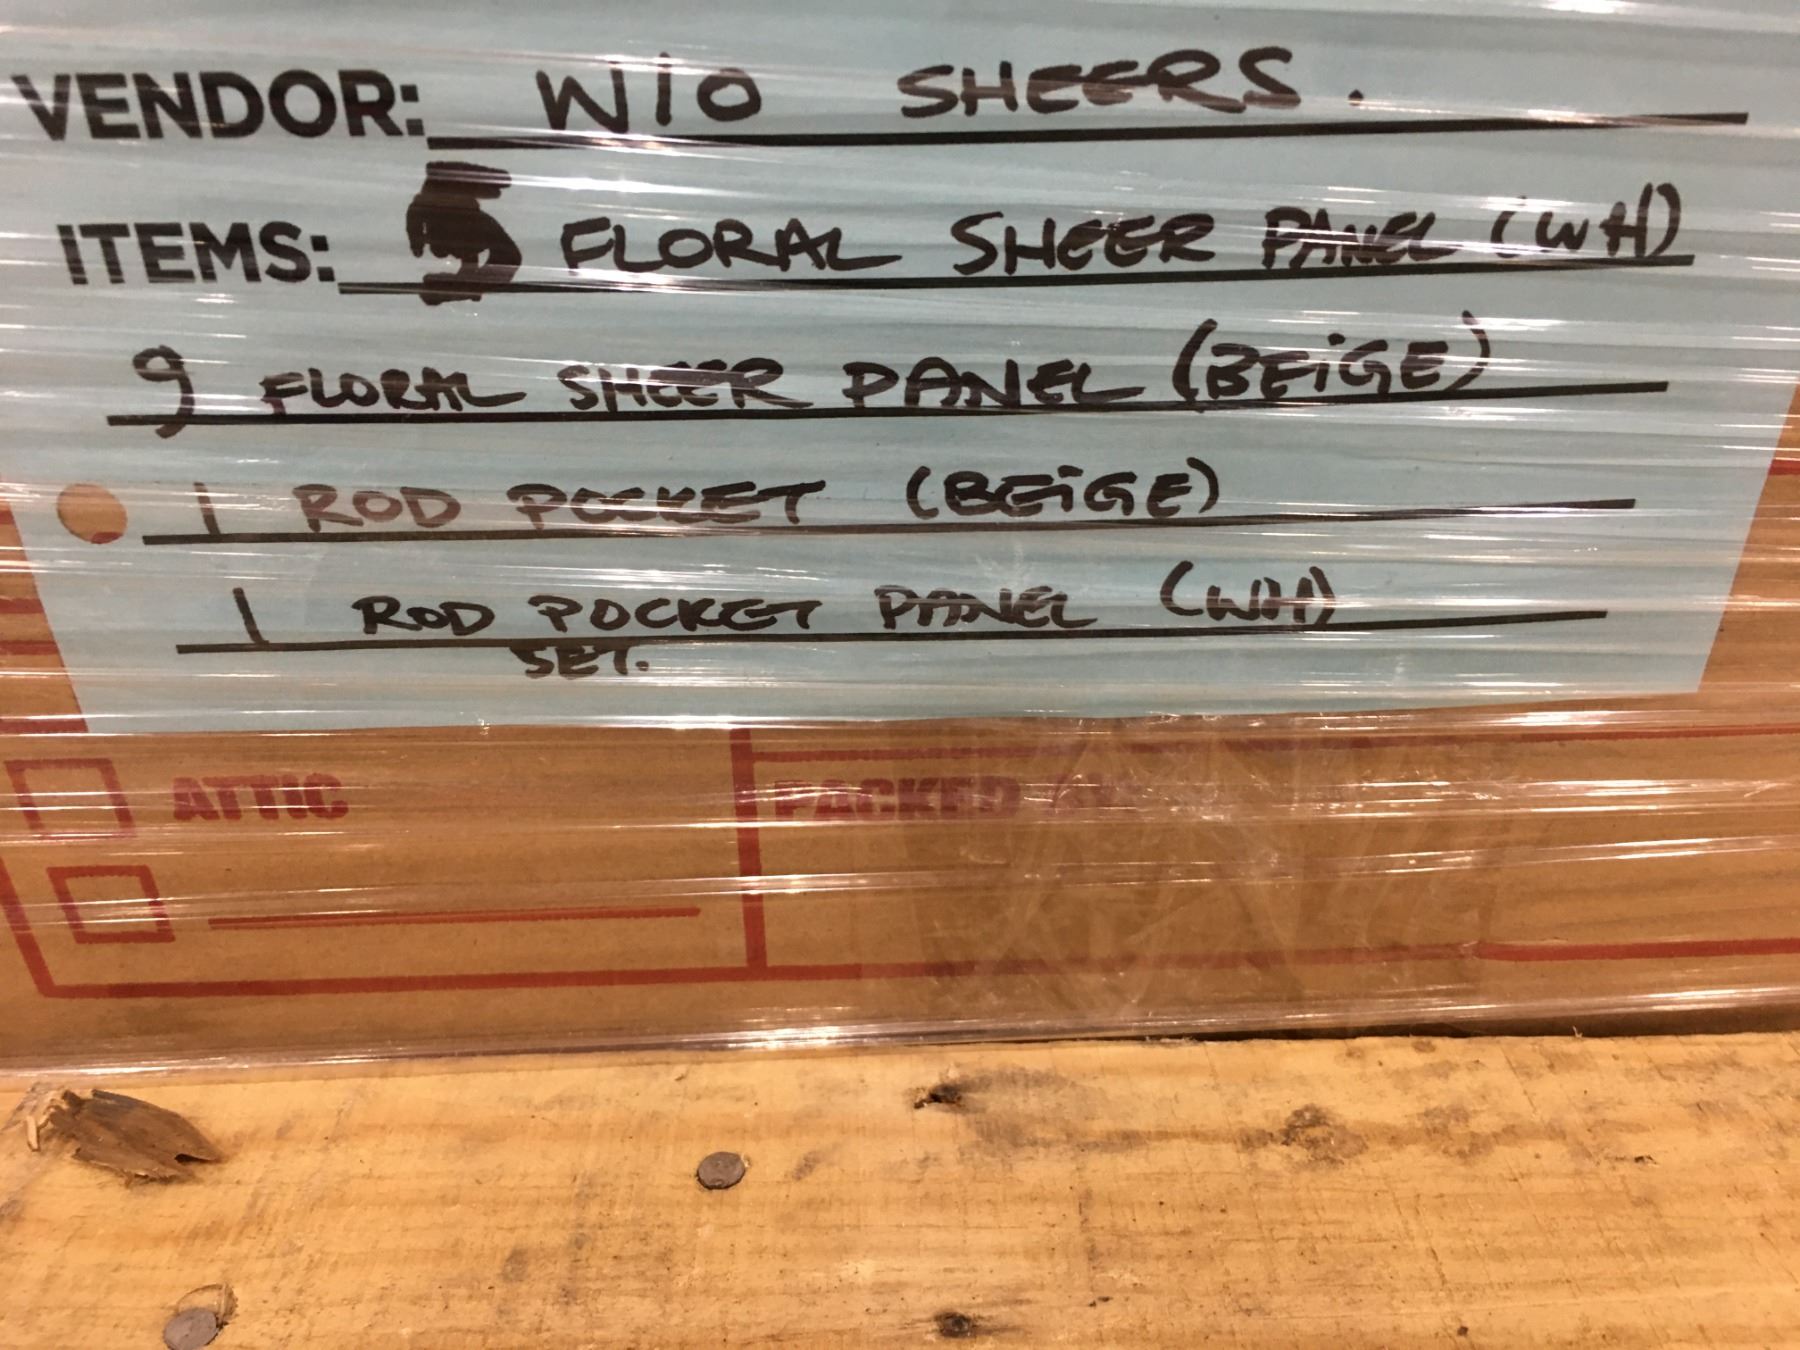 VENDOR: W/O SHEERS.
ITEMS: 5 FLORAL SHEER PANEL (WH)
9 FLORAL SHEER PANEL (BEiGE)
1 ROD POCKET (BEiGE)
1 ROD POCKET PANEL (WH)
SET.
ATTIC
PACKED BY